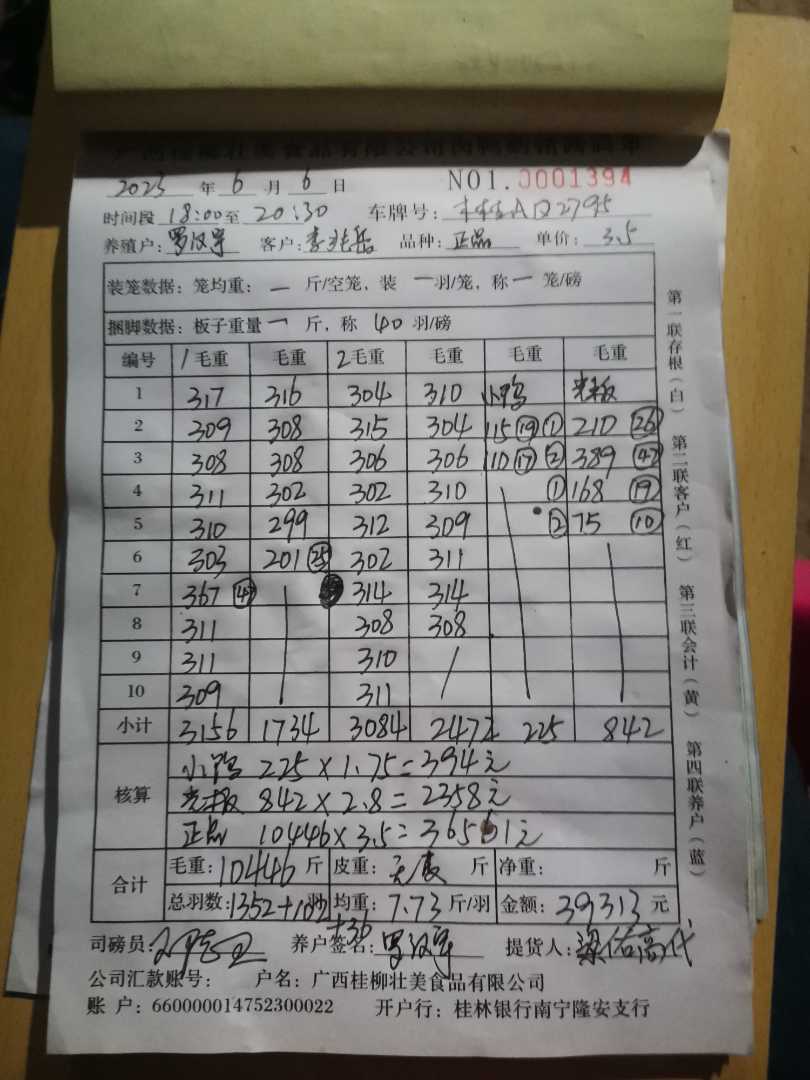 2023 年 6 月 6 日 NO1. 0001394
时间段 18:00 至 20:30 车牌号: 桂AQ2795
养殖户: 罗汉军 客户: 李兆岳 品种: 正品 单价: 3.5
装笼数据: 笼均重: 一 斤/空笼, 装 一 羽/笼, 称 一 笼/磅
捆脚数据: 板子重量 一 斤, 称 40 羽/磅
编号 1毛重 毛重 2毛重 毛重 毛重 毛重
1 317 316 304 310 小鸭 光板
2 309 308 315 304 115 ⑲ ① 210 ㉖
3 308 308 306 306 110 ⑰ ② 389 ㊼
4 311 302 302 310 ① 168 ⑲
5 310 299 312 309 ② 75 ⑩
6 303 201 ㉕ 302 311
7 367 314 314
8 311 308 308
9 311 310
10 309 311
小计 3156 1734 3084 2472 225 842
核算
小鸭 225×1.75=394元
光板 842×2.8=2358元
正品 10446×3.5=36561元
合计
毛重: 10446 斤 皮重: 斤 净重: 斤
总羽数: 1352+102 羽 均重: 7.73 斤/羽 金额: 39313 元
+36
司磅员: 养户签名: 罗汉军 提货人: 梁佑高代
公司汇款账号: 户名: 广西桂柳壮美食品有限公司
账 户: 660000014752300022 开户行: 桂林银行南宁隆安支行
第一联存根(白) 第二联客户(红) 第三联会计(黄) 第四联养户(蓝)